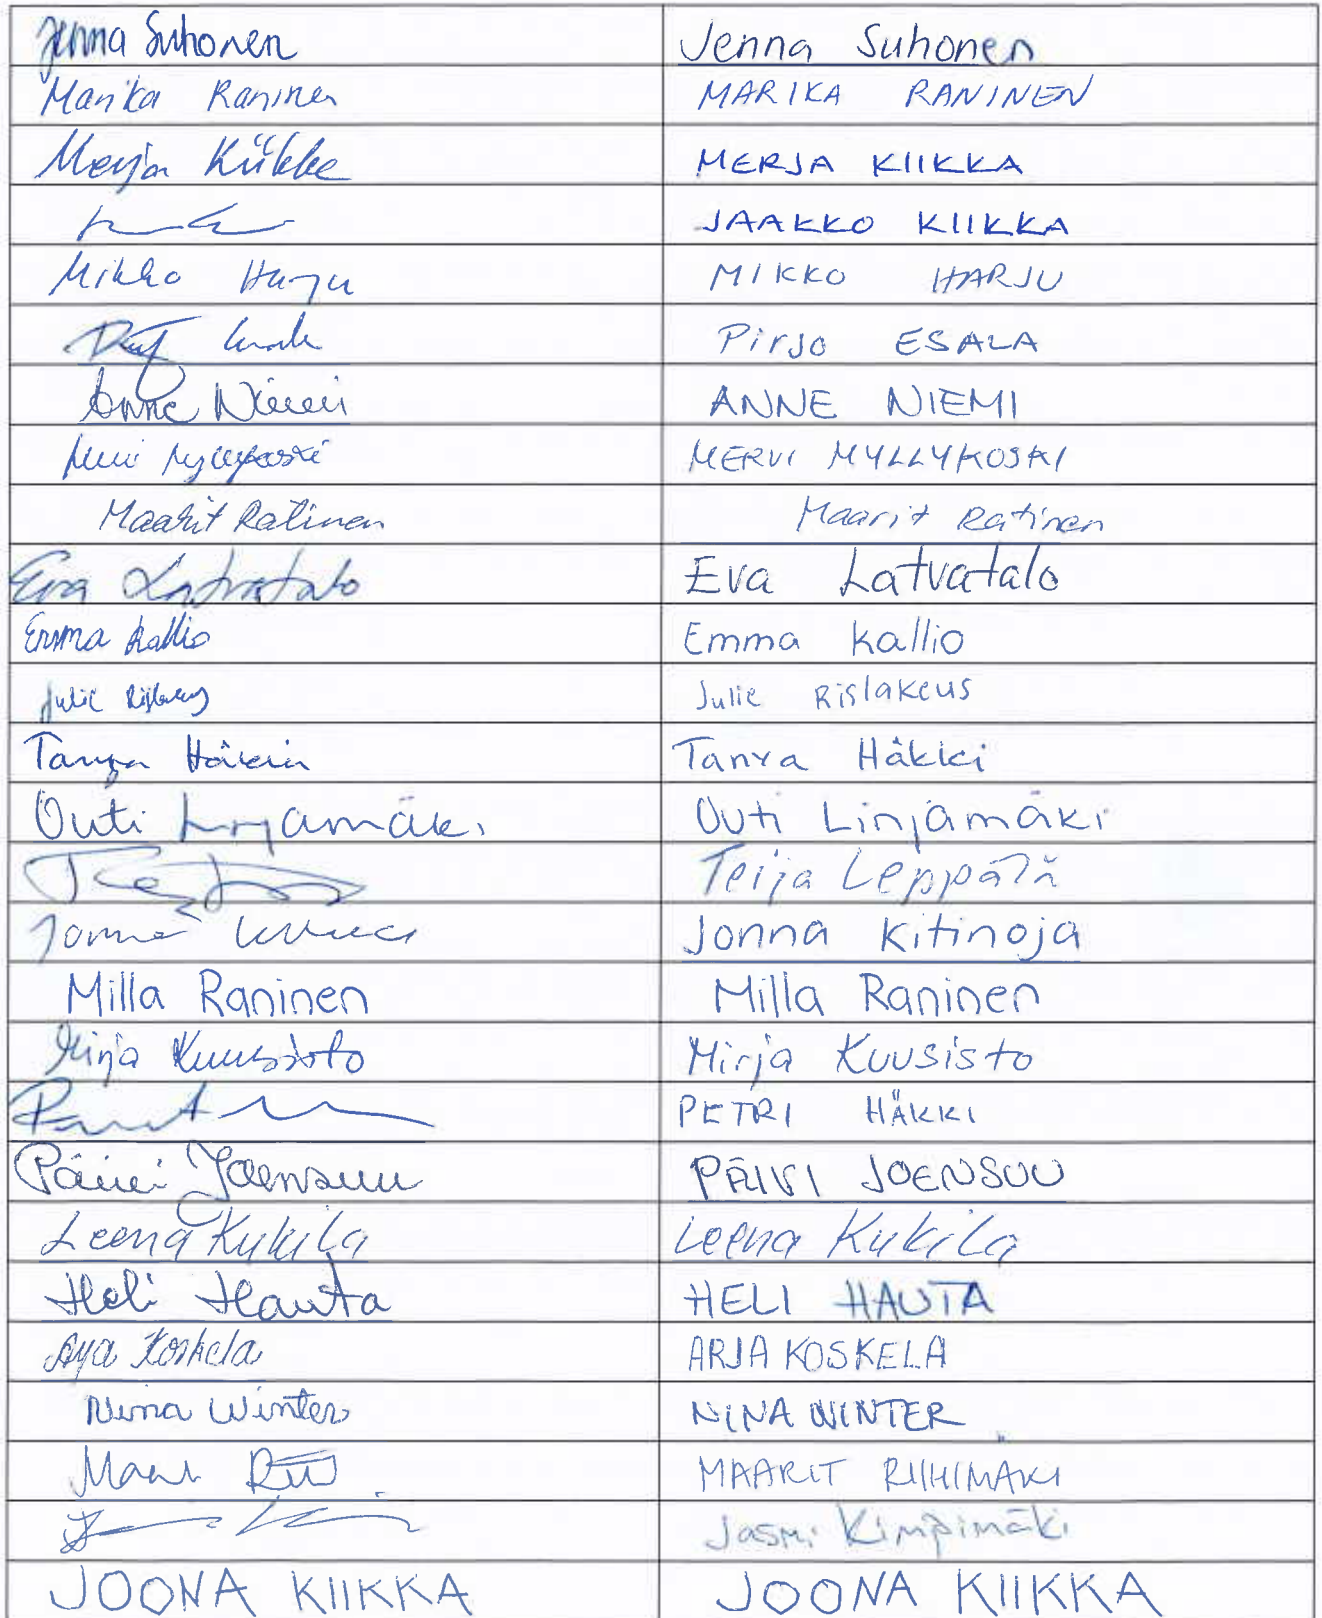 Jenna Suhonen Jenna Suhonen
Marika Raninen MARIKA RANINEN
Merja Kiikka MERJA KIIKKA
JAAKKO KIIKKA
Mikko Harju MIKKO HARJU
PirJo ESALA
Anne Niemi ANNE NIEMI
MERVI MYLLYKOSKI
Maarit Ratinen Maarit Ratinen
Eva Latvatalo Eva Latvatalo
Emma Kallio Emma Kallio
Julie Julie Rislakeus
Tanya Tanya Häkki
Outi Linjamäki Outi Linjamäki
Teija Leppälä
Jonna Jonna Kitinoja
Milla Raninen Milla Raninen
Mirja Kuusisto Mirja Kuusisto
PETRI HÄKKI
Päivi Joensuu PÄIVI JOENSUU
Leena Kukila Leena Kukila
Heli Hauta HELI HAUTA
Arja Koskela ARJA KOSKELA
Nina Winter NINA WINTER
MAARIT RIIHIMÄKI
Jasmi Kimpimäki
JOONA KIIKKA JOONA KIIKKA